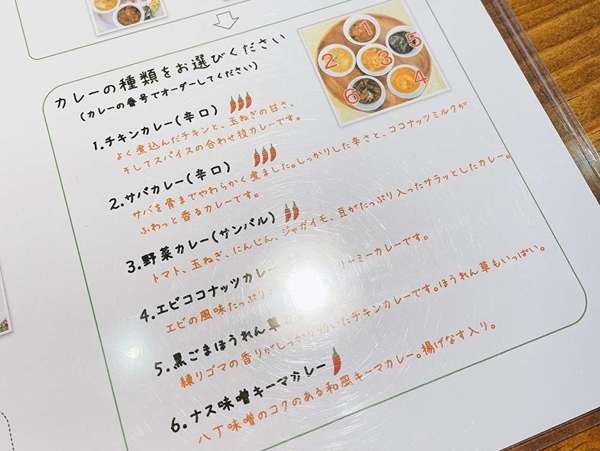 カレーの種類をお選びください
(カレーの番号でオーダーしてください)
1.チキンカレー(辛口)
よく煮込んだチキンと、玉ねぎの甘さ、
そしてスパイスの合わせ技カレーです。
2.サバカレー(辛口)
サバを骨までやわらかく煮ました。しっかりした辛さと、ココナッツミルクが
ふわっと香るカレーです。
3.野菜カレー(サンバル)
トマト、玉ねぎ、にんじん、ジャガイモ、豆がたっぷり入ったサラッとしたカレー。
4.エビココナッツカレー
エビの風味たっぷり ーミーカレーです。
5.黒ごまほうれん草
練りゴマの香りがしっかり いたチキンカレーです。ほうれん草もいっぱい。
6.ナス味噌キーマカレー
八丁味噌のコクのある和風キーマカレー。揚げなす入り。
1
2
3
4
5
6